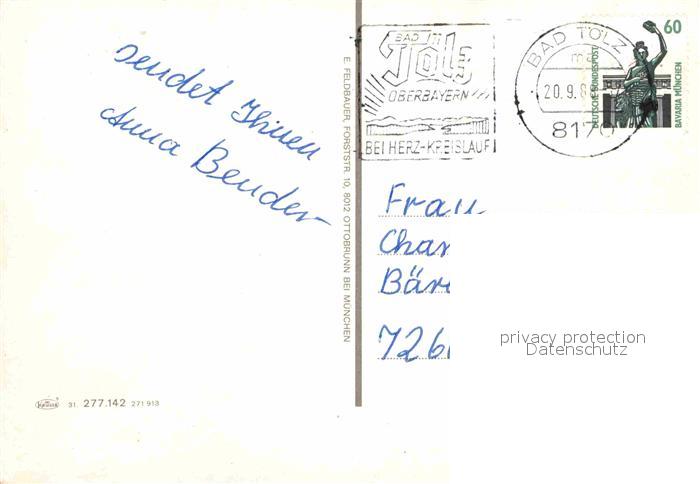 sendet Ihnen
Anna Bender
E. FELDBAUER, FORSTSTR. 10, 8012 OTTOBRUNN BEI MÜNCHEN
31. 277.142 271 913
BAD
Tölz
OBERBAYERN
BEI HERZ-KREISLAUF
BAD TÖLZ
20.9.8
8170
60
DEUTSCHE BUNDESPOST
BAVARIA MÜNCHEN
Frau
Char
Bär
726
privacy protection
Datenschutz